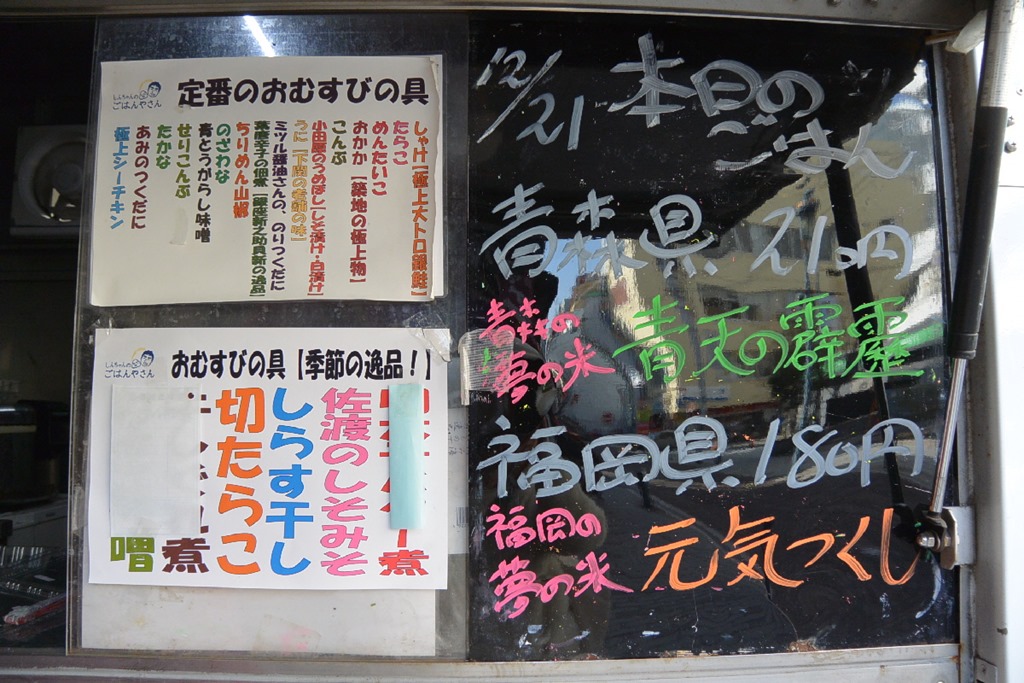 しんちゃんの
ごはんやさん
定番のおむすびの具
しゃけ【極上大トロ銀鮭】
たらこ
めんたいこ
おかか【築地の極上物】
こんぶ
小田原のうめぼし【しそ漬け・白漬け】
うに【下関の老舗の味】
ミツル醤油さんの、のりつくだに
葉唐辛子の佃煮
ちりめん山椒
のざわな
青とうがらし味噌
せりこんぶ
たかな
あみのつくだに
極上シーチキン
しんちゃんの
ごはんやさん
おむすびの具【季節の逸品!】
煮
佐渡のしそみそ
しらす干し
切たらこ
煮
噌
12/21
本日の
ごはん
青森県 210円
青森の
夢の米
青天の霹靂
福岡県 180円
福岡の
夢の米
元気つくし